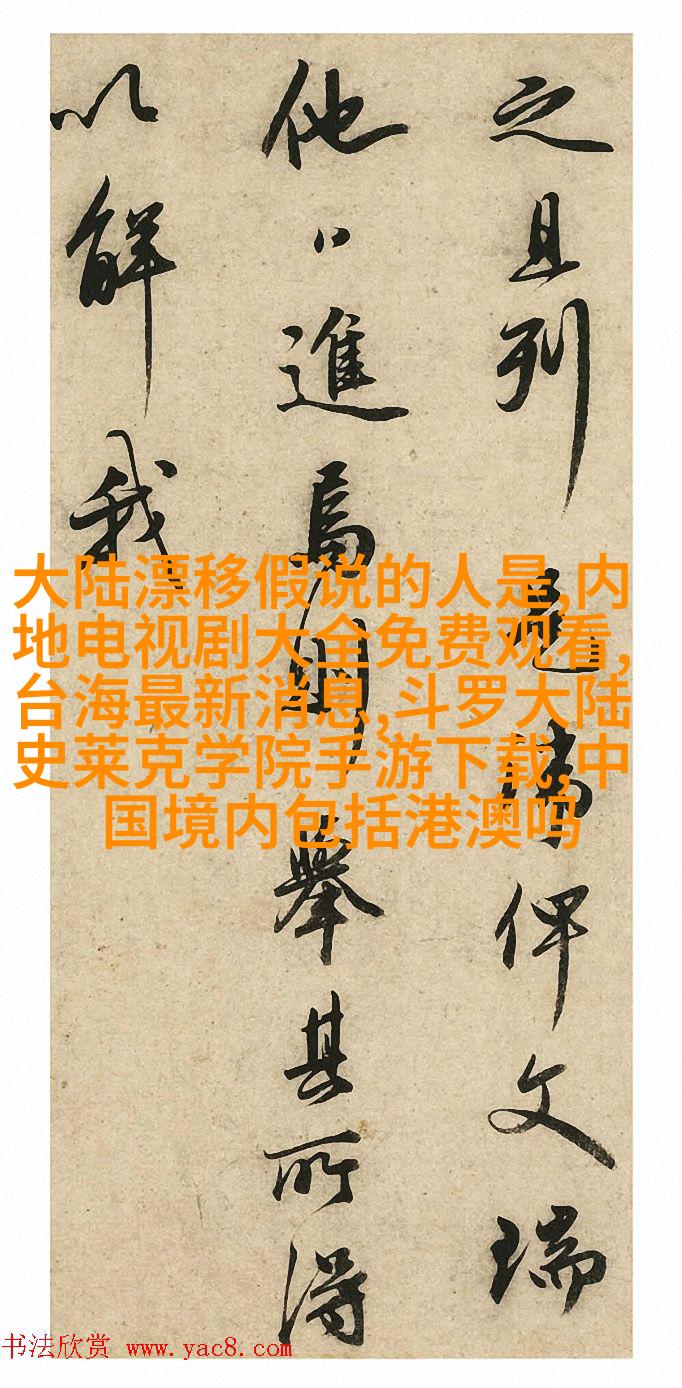 之且列端俾文瑞
他進爲舉其所得
以解我
大陆漂移假说的人是,内
地电视剧大全免费观看,
台海最新消息,斗罗大陆
史莱克学院手游下载,中
国境内包括港澳吗
书法欣赏 www.yac8.com